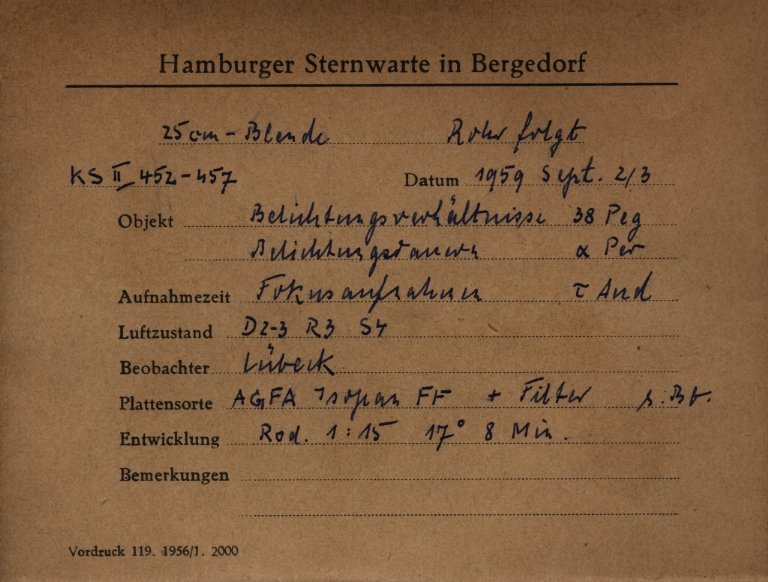 Hamburger Sternwarte in Bergedorf
25cm-Blende Rohr folgt
KS II 452-457 Datum 1959 Sept. 2/3
Objekt Belichtungsverhältnisse 38 Peg
Belichtungsdauern α Per
Aufnahmezeit Fokusaufnahmen τ And
Luftzustand D2-3 R3 S4
Beobachter Lübeck
Plattensorte AGFA Isopan FF + Filter s. Bt.
Entwicklung Rod. 1:15 17° 8 Min.
Bemerkungen
Vordruck 119. 1956/1. 2000